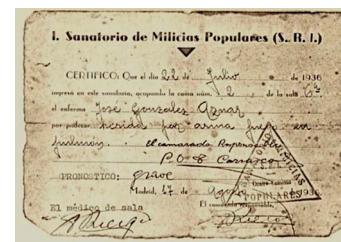 I. Sanatorio de Milicias Populares (S. R. I.)
CERTIFICO: Que el día 22 de Julio de 1936
ingresó en este sanatorio, ocupando la cama núm. 2 de la sala 6ª
el enfermo José Gonzales Aznar
por padecer heridas por arma fuego en
pulmon. El camarada Responsable
P.O-8 Carrasco
PRONOSTICO: grave
Madrid, 17 de Agosto 1936
El médico de sala El camarada responsable,
MILICIAS
POPULARES